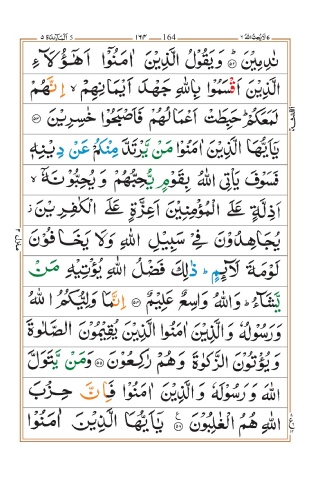 164
نٰدِمِيْنَ ۙ ﴿۵۲﴾ وَيَقُوْلُ الَّذِيْنَ اٰمَنُوْۤا اَهٰۤؤُلَآءِ
الَّذِيْنَ اَقْسَمُوْا بِاللّٰهِ جَهْدَ اَيْمَانِهِمْ ۙ اِنَّهُمْ
لَمَعَكُمْ ؕ حَبِطَتْ اَعْمَالُهُمْ فَاَصْبَحُوْا خٰسِرِيْنَ ﴿۵۳﴾
يٰۤاَيُّهَا الَّذِيْنَ اٰمَنُوْا مَنْ يَّرْتَدَّ مِنْكُمْ عَنْ دِيْنِهٖ
فَسَوْفَ يَاْتِى اللّٰهُ بِقَوْمٍ يُّحِبُّهُمْ وَيُحِبُّوْنَهٗۤ ۙ
اَذِلَّةٍ عَلَى الْمُؤْمِنِيْنَ اَعِزَّةٍ عَلَى الْكٰفِرِيْنَ ؗ
يُجَاهِدُوْنَ فِىْ سَبِيْلِ اللّٰهِ وَلَا يَخَافُوْنَ
لَوْمَةَ لَآئِمٍ ؕ ذٰلِكَ فَضْلُ اللّٰهِ يُؤْتِيْهِ مَنْ
يَّشَآءُ ؕ وَاللّٰهُ وَاسِعٌ عَلِيْمٌ ﴿۵۴﴾ اِنَّمَا وَلِيُّكُمُ اللّٰهُ
وَرَسُوْلُهٗ وَالَّذِيْنَ اٰمَنُوا الَّذِيْنَ يُقِيْمُوْنَ الصَّلٰوةَ
وَيُؤْتُوْنَ الزَّكٰوةَ وَهُمْ رٰكِعُوْنَ ﴿۵۵﴾ وَمَنْ يَّتَوَلَّ
اللّٰهَ وَرَسُوْلَهٗ وَالَّذِيْنَ اٰمَنُوْا فَاِنَّ حِزْبَ
اللّٰهِ هُمُ الْغٰلِبُوْنَ ﴿۵۶﴾ يٰۤاَيُّهَا الَّذِيْنَ اٰمَنُوْا